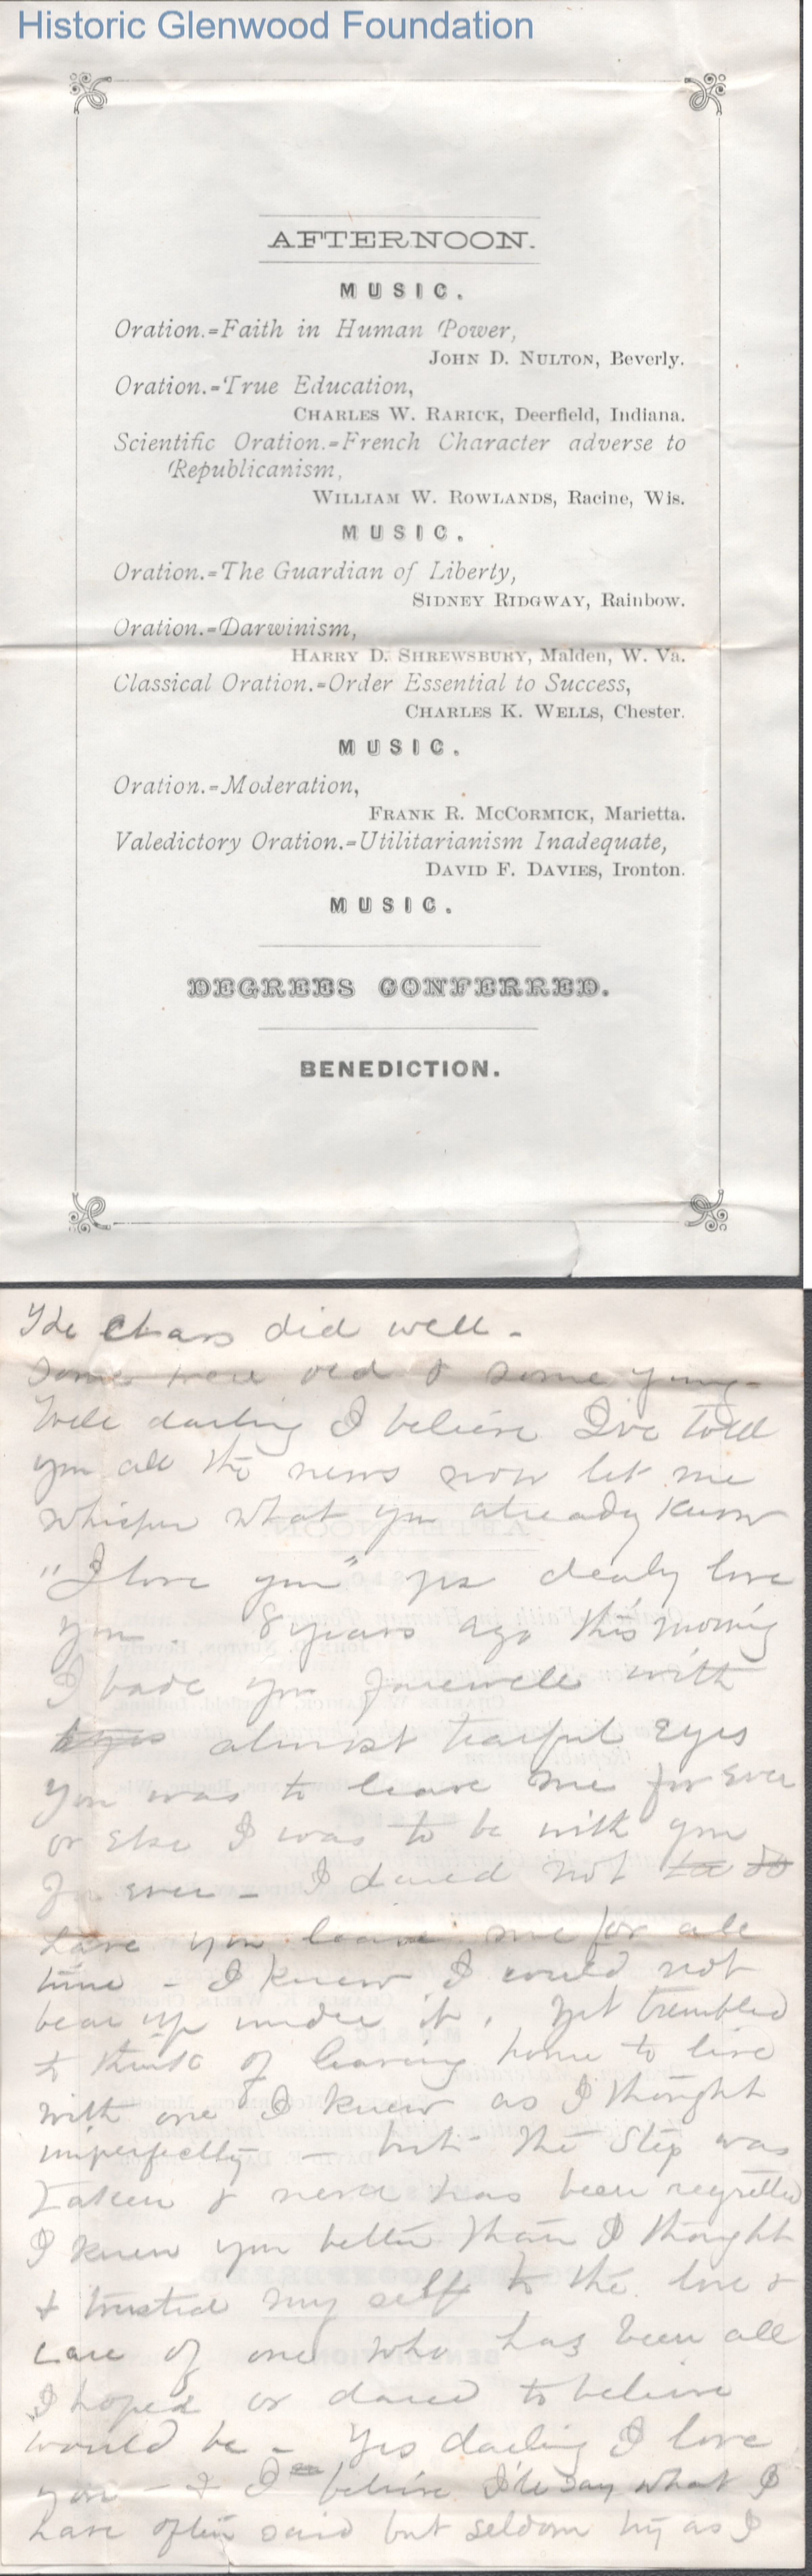 Historic Glenwood Foundation
AFTERNOON.
MUSIC.
Oration.=Faith in Human Power,
JOHN D. NULTON, Beverly.
Oration.=True Education,
CHARLES W. RARICK, Deerfield, Indiana.
Scientific Oration.=French Character adverse to
Republicanism,
WILLIAM W. ROWLANDS, Racine, Wis.
MUSIC.
Oration.=The Guardian of Liberty,
SIDNEY RIDGWAY, Rainbow.
Oration.=Darwinism,
HARRY D. SHREWSBURY, Malden, W. Va.
Classical Oration.=Order Essential to Success,
CHARLES K. WELLS, Chester.
MUSIC.
Oration.=Moderation,
FRANK R. MCCORMICK, Marietta.
Valedictory Oration.=Utilitarianism Inadequate,
DAVID F. DAVIES, Ironton.
MUSIC.
DEGREES CONFERRED.
BENEDICTION.
The did well -
Some were old & some young -
Well darling I believe I've told
you all the news now let me
whisper what you already know
"I love you" yes dearly love
you. 8 years ago this morning
I bade you farewell with
almost tearful Eyes
You was to leave me for ever
or Else I was to be with you
for ever - I dared not
have you leave me for all
time - I knew I could not
bear up under it, yet trembled
to think of leaving home to live
with one I knew as I thought
imperfectly - but the Step was
taken & never has been regretted
I knew you better than I thought
& trusted my self to the love &
care of one who has been all
I hoped or dared to believe
would be - Yes darling I love
you - & I believe I'll say what I
have often said but seldom as I